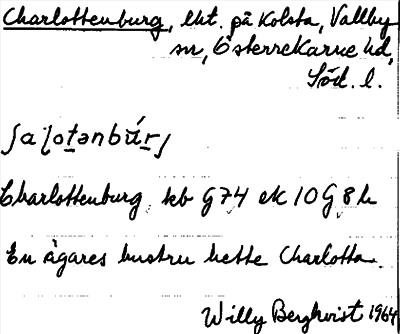 Charlottenburg, lht. på Kolsta, Vallby
sn, Österrekarne hd,
Söd. l.
ʃaɭotənbúrj
Charlottenburg kb G74 ek 10G 8h
En ägares hustru hette Charlotta.
Willy Bergkvist 1964